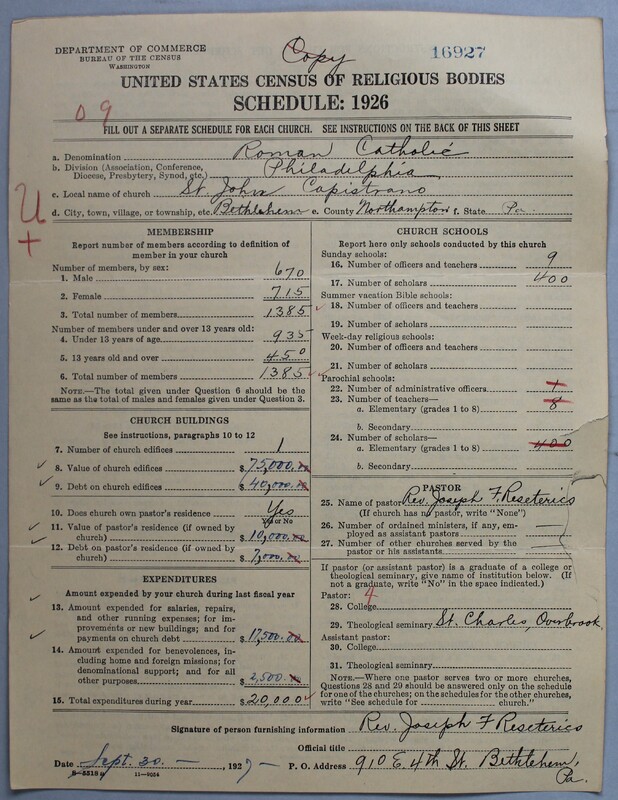 Copy
16927
DEPARTMENT OF COMMERCE
BUREAU OF THE CENSUS
WASHINGTON
UNITED STATES CENSUS OF RELIGIOUS BODIES
SCHEDULE: 1926
0 9
FILL OUT A SEPARATE SCHEDULE FOR EACH CHURCH. SEE INSTRUCTIONS ON THE BACK OF THIS SHEET
a. Denomination Roman Catholic
b. Division (Association, Conference, Diocese, Presbytery, Synod, etc.) Philadelphia
c. Local name of church St. John Capistrano
d. City, town, village, or township, etc. Bethlehem e. County Northampton f. State Pa
U
+
MEMBERSHIP
Report number of members according to definition of
member in your church
Number of members, by sex:
1. Male 670
2. Female 715
3. Total number of members 1385
Number of members under and over 13 years old:
4. Under 13 years of age 935
5. 13 years old and over 450
6. Total number of members 1385
NOTE.—The total given under Question 6 should be
the same as the total of males and females given under Question 3.
CHURCH BUILDINGS
See instructions, paragraphs 10 to 12
7. Number of church edifices 1
8. Value of church edifices $ 75,000.00
9. Debt on church edifices $ 40,000.00
10. Does church own pastor's residence Yes
Yes or No
11. Value of pastor's residence (if owned by
church) $ 10,000.00
12. Debt on pastor's residence (if owned by
church) $ 7,000.00
EXPENDITURES
Amount expended by your church during last fiscal year
13. Amount expended for salaries, repairs,
and other running expenses; for im-
provements or new buildings; and for
payments on church debt $ 17,500.00
14. Amount expended for benevolences, in-
cluding home and foreign missions; for
denominational support; and for all
other purposes $ 2,500.00
15. Total expenditures during year $ 20,000
CHURCH SCHOOLS
Report here only schools conducted by this church
Sunday schools:
16. Number of officers and teachers 9
17. Number of scholars 400
Summer vacation Bible schools:
18. Number of officers and teachers
19. Number of scholars
Week-day religious schools:
20. Number of officers and teachers
21. Number of scholars
Parochial schools:
22. Number of administrative officers 1
23. Number of teachers—
a. Elementary (grades 1 to 8) 8
b. Secondary
24. Number of scholars—
a. Elementary (grades 1 to 8) 400
b. Secondary
PASTOR
25. Name of pastor Rev. Joseph F. Reseterics
(If church has no pastor, write "None")
26. Number of ordained ministers, if any, em-
ployed as assistant pastors —
27. Number of other churches served by the
pastor or his assistants —
If pastor (or assistant pastor) is a graduate of a college or
theological seminary, give name of institution below. (If
not a graduate, write "No" in the space indicated.)
Pastor: 4
28. College
29. Theological seminary St. Charles, Overbrook
Assistant pastor:
30. College
31. Theological seminary
NOTE.—Where one pastor serves two or more churches,
Questions 28 and 29 should be answered only on the schedule
for one of the churches; on the schedules for the other churches,
write "See schedule for church."
Signature of person furnishing information Rev. Joseph F Reseterics
Official title
Date Sept. 30 —, 1927— P. O. Address 910 E. 4th St. Bethlehem, Pa.
8-5318 a 11-9034